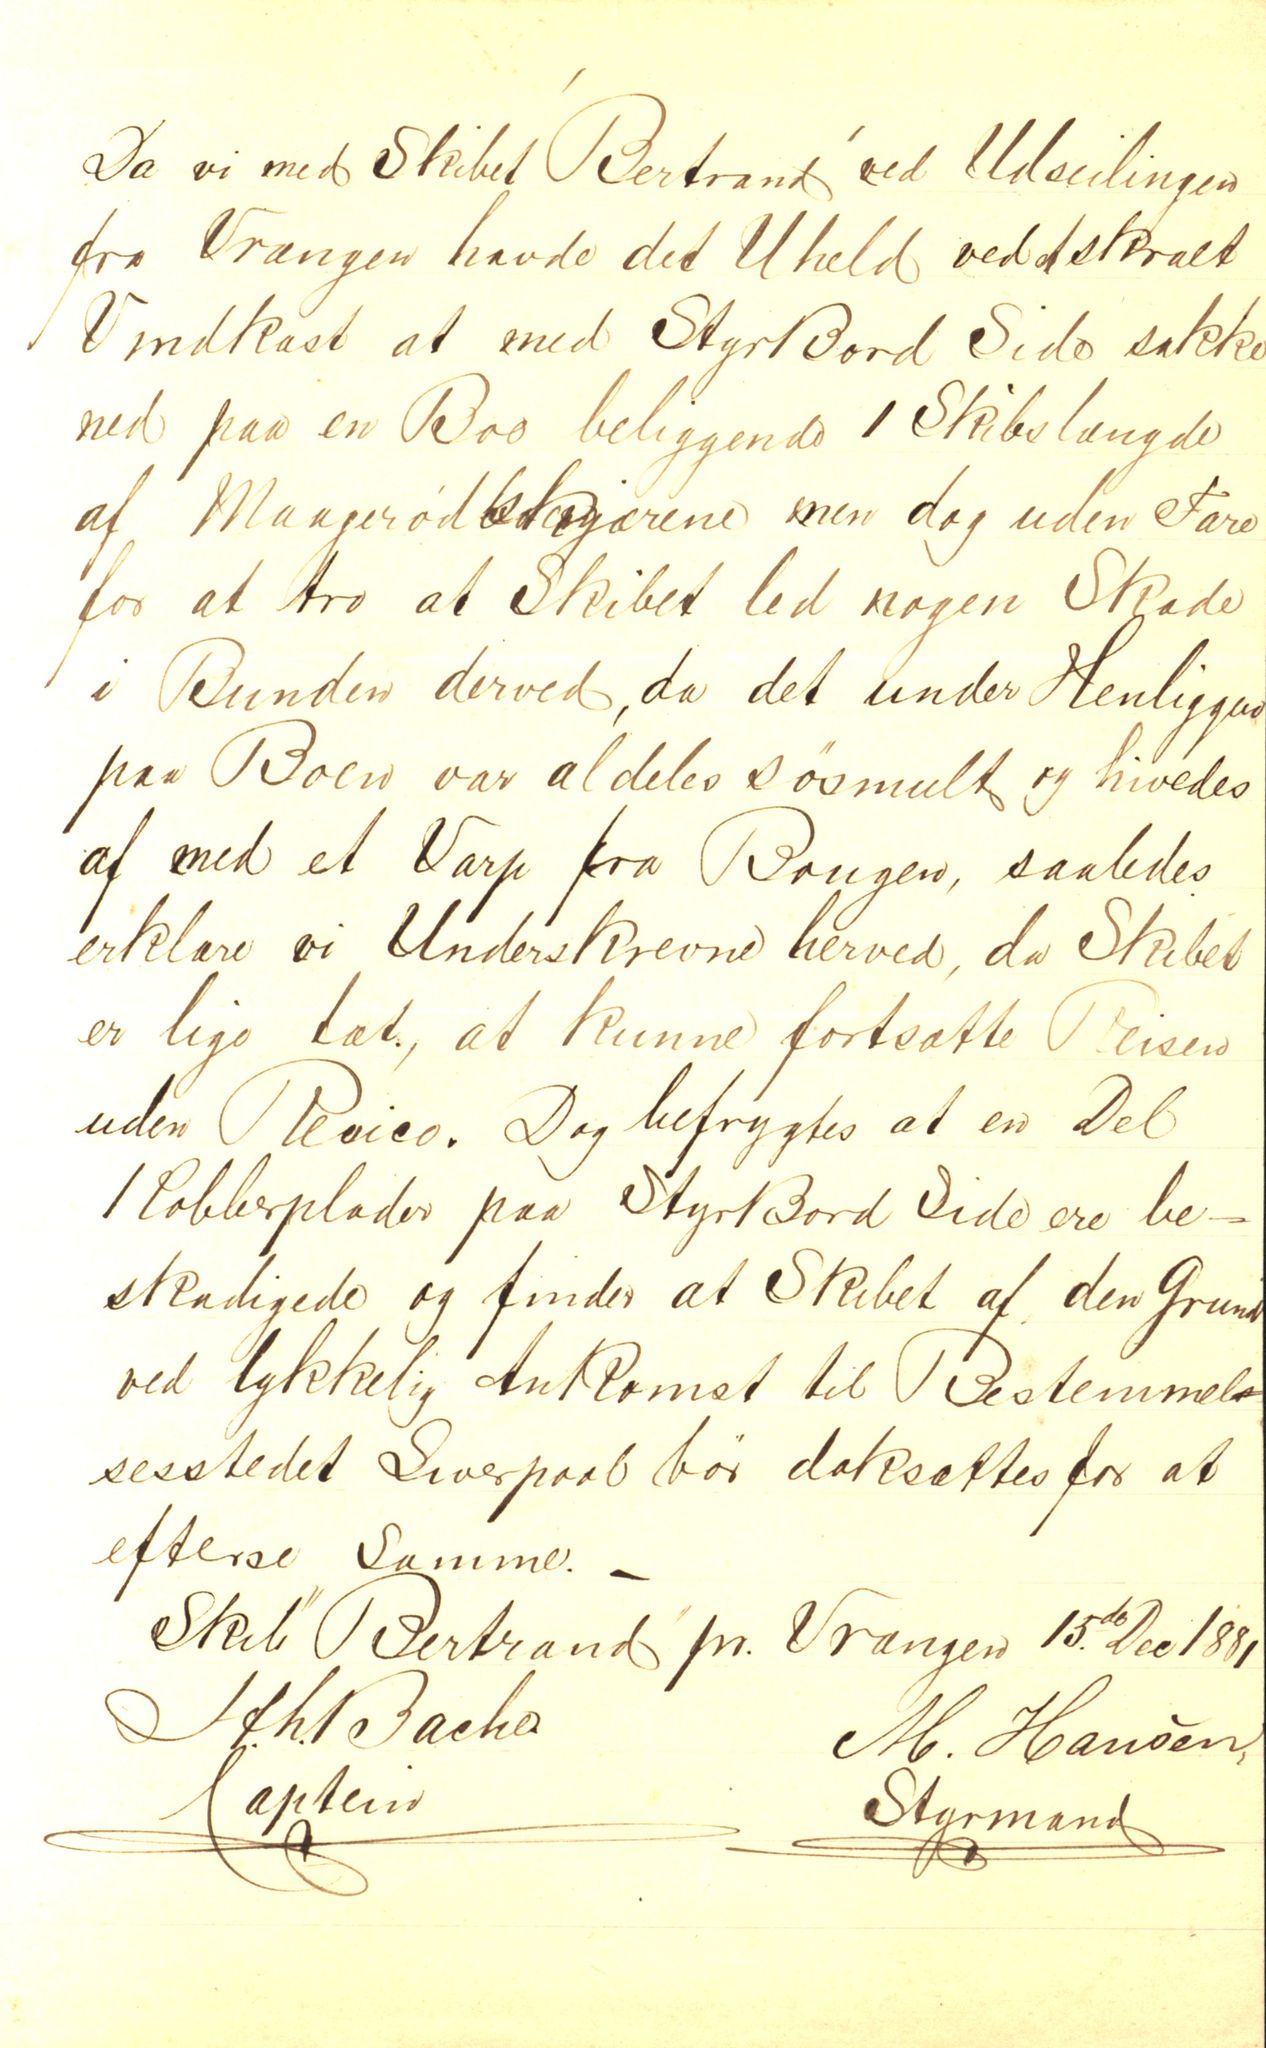 Da vi med Skibet Bertrand ved Udseilingen
fra Vrangen havde det Uheld ved et skralt
Vindkast at med StyrBord Side sakke
ned paa en Boo beliggende 1 Skibslængde
af Maagerödskjærene men dog uden Fare
for at tro at Skibet led nogen Skade
i Bunden derved, da det under Henliggen
paa Boen var aldeles sösmult og hivedes
af med et Varp fra Bougen, saaledes
erklare vi Underskrevne herved, da Skibet
er lige tæt., at kunne fortsætte Reisen
uden Revico. Dog befrygtes at en Del
Kobberplader paa StyrBord Side ere be-
skadigede og finder at Skibet af den Grund
ved lykkelig Ankomst til Bestemmel-
sesstedet Liverpool bör doksættes for at
efterse Samme. -
Skib "Bertrand" pr. Vrangen 15.de Dec 1881
Bache M. Hansen,
Captein Styrmand